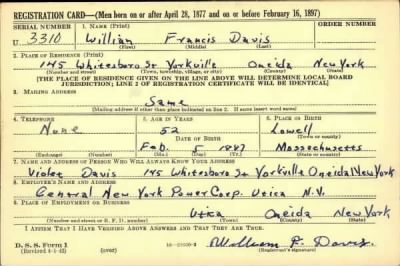 REGISTRATION CARD—(Men born on or after April 28, 1877 and on or before February 16, 1897)
SERIAL NUMBER 1. NAME (Print) ORDER NUMBER
U 3310 William Francis Davis
(First) (Middle) (Last)
2. PLACE OF RESIDENCE (Print)
145 Whitesboro St Yorkville Oneida New York
(Number and street) (Town, township, village, or city) (County) (State)
[THE PLACE OF RESIDENCE GIVEN ON THE LINE ABOVE WILL DETERMINE LOCAL BOARD
JURISDICTION; LINE 2 OF REGISTRATION CERTIFICATE WILL BE IDENTICAL]
3. MAILING ADDRESS
Same
[Mailing address if other than place indicated on line 2. If same insert word same]
4. TELEPHONE 5. AGE IN YEARS 6. PLACE OF BIRTH
None 52 Lowell
DATE OF BIRTH (Town or county)
Feb. 5 Massachusetts
(Exchange) (Number) (Mo.) (Day) (Yr.) (State or country)
7. NAME AND ADDRESS OF PERSON WHO WILL ALWAYS KNOW YOUR ADDRESS
Violet Davis 145 Whitesboro St Yorkville Oneida New York
8. EMPLOYER'S NAME AND ADDRESS
Central New York Power Corp. Utica N.Y.
9. PLACE OF EMPLOYMENT OR BUSINESS
Utica Oneida New York
(Number and street or R. F. D. number) (Town) (County) (State)
I AFFIRM THAT I HAVE VERIFIED ABOVE ANSWERS AND THAT THEY ARE TRUE.
D. S. S. Form 1 William F. Davis
(Revised 4-1-42) (over) (Registrant's signature)